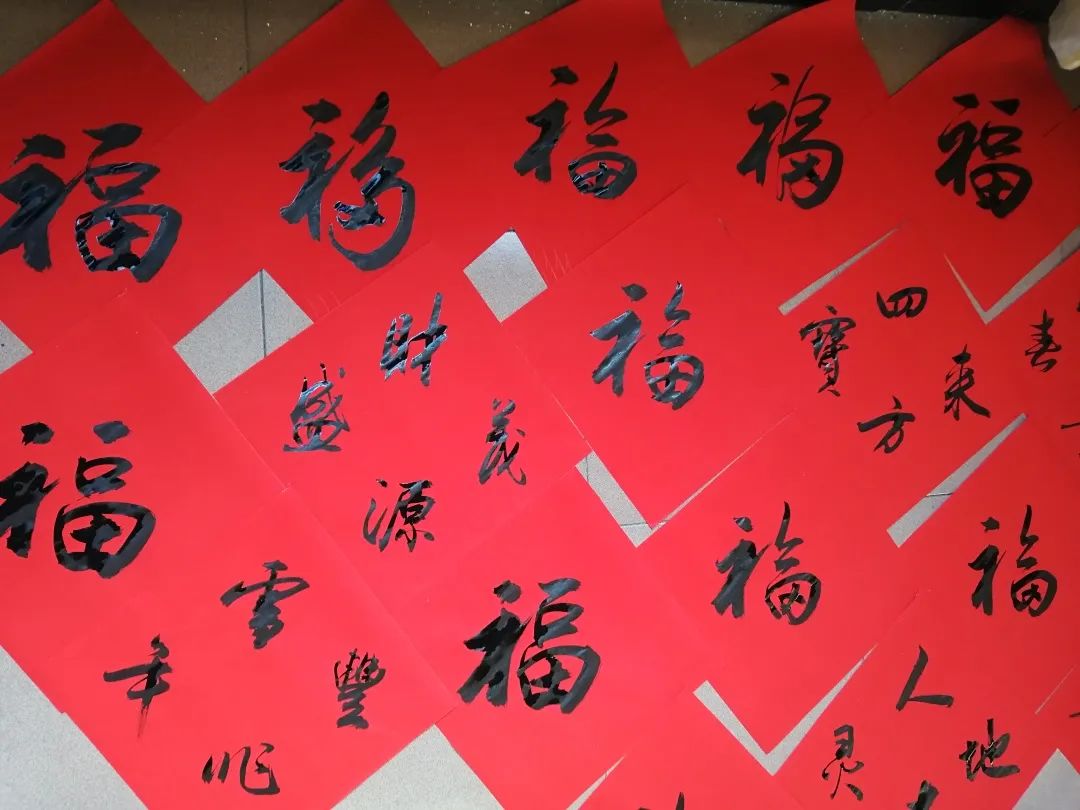 福
福
福
福
福
財源茂盛
福
四方来寶
春
福
福
福
福
雪兆豐年
人地灵